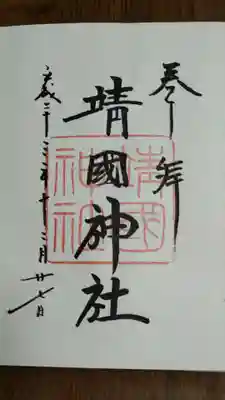 参拝
靖國神社
平成二十三年十二月廿七日
靖國
神社